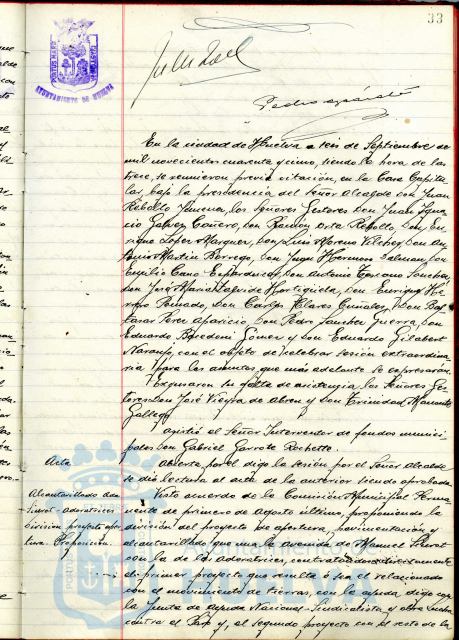 33
AYUNTAMIENTO DE HUELVA
En la ciudad de Huelva a seis de Septiembre de
mil novecientos cuarenta y cinco, siendo la hora de las
trece, se reunieron previa citación, en la Casa Capitu-
lar, bajo la presidencia del Señor Alcalde don Juan
Rebollo Jimenez, los Señores Gestores Don Juan Igna-
cio Galvez Cañero, Don Ramon Orta Rebollo, Don En-
rique Lopez Marquez, Don Luis Moreno Vilches, Don An-
tonio Martin Borrego, Don Jorge Hermoso
Emilio Cano Don Antonio Sanchez,
Don José Maria Hortigüela, Don Enrique
Don Carlos Don Bal-
tasar Perez Aparicio, Don Pedro Sanchez Guerra, Don
Eduardo Gomez y Don Eduardo Gilabert
Naranjo, con el objeto de celebrar sesión extraordina-
ria para los asuntos que más adelante se expresarán.
Excusaron su falta de asistencia los Señores Ges-
tores Don José Vieyra de Abreu y Don Trinidad
Gallego
Asistió el Señor Interventor de fondos munici-
pales Don Gabriel Garrote
Acta
Abierta por el digo la sesión por el Señor Alcalde
se dió lectura al acta de la anterior siendo aprobada.
Alcantarillado de
Siurot-Adoratrices
División proyecto aper-
tura. Proposición.
Visto acuerdo de la Comisión Municipal Perma-
nente de primero de agosto último, proponiendo la
división del proyecto de apertura, pavimentación y
alcantarillado que una la avenida de Manuel Siurot
con la de las adoratrices, contratandose directamente
el primer proyecto que resulta o sea el relacionado
con el movimiento de tierras, con la ayuda digo con
la Junta de ayuda Nacional-Sindicalista y obra lucha
contra el Paro y, el segundo proyecto con el resto de la